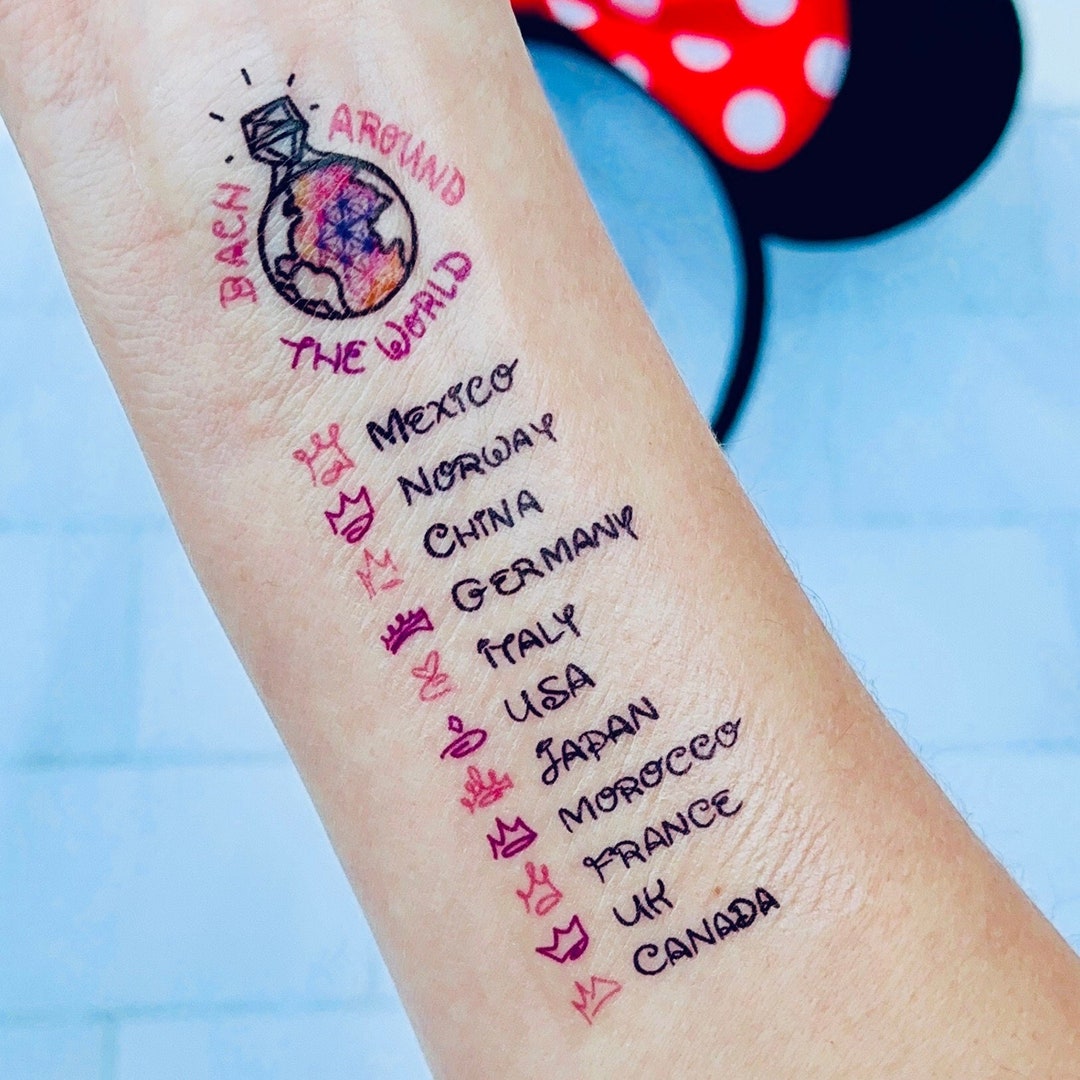 BACH
AROUND
THE WORLD
MEXICO
NORWAY
CHINA
GERMANY
ITALY
USA
JAPAN
MOROCCO
FRANCE
UK
CANADA